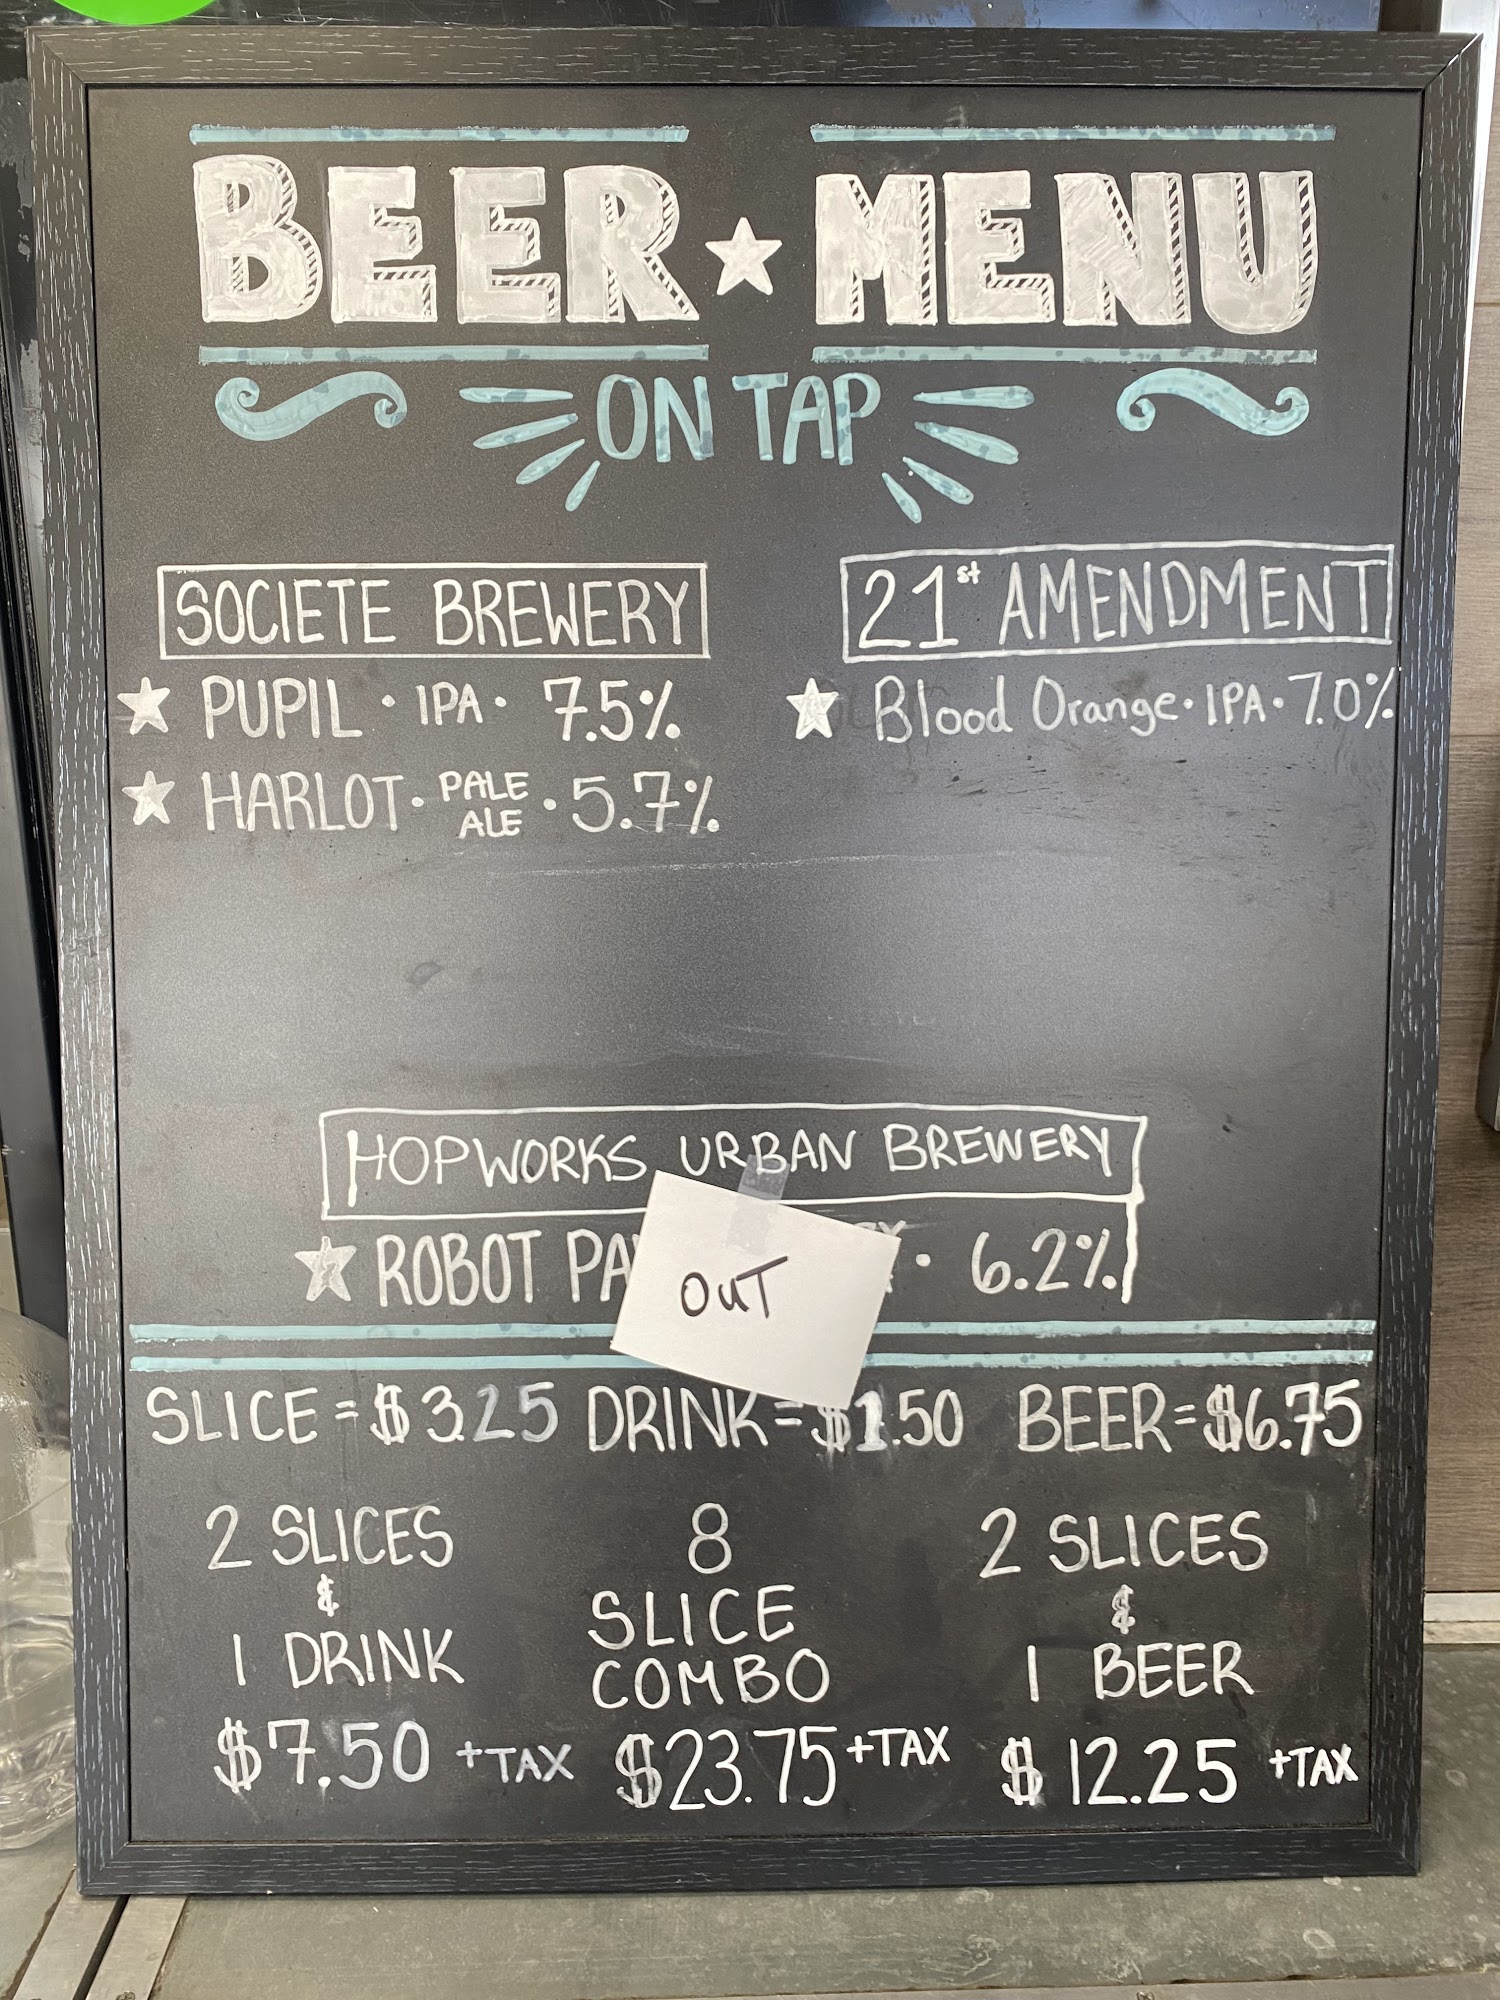 BEER ★ MENU
ON TAP
SOCIETE BREWERY
★ PUPIL • IPA • 7.5%
★ HARLOT • PALE ALE • 5.7%
21st AMENDMENT
★ Blood Orange • IPA • 7.0%
HOPWORKS URBAN BREWERY
★ ROBOT • 6.2%
OUT
SLICE = $3.25 DRINK = $1.50 BEER = $6.75
2 SLICES
&
1 DRINK
$7.50 +TAX
8
SLICE
COMBO
$23.75 +TAX
2 SLICES
&
1 BEER
$12.25 +TAX